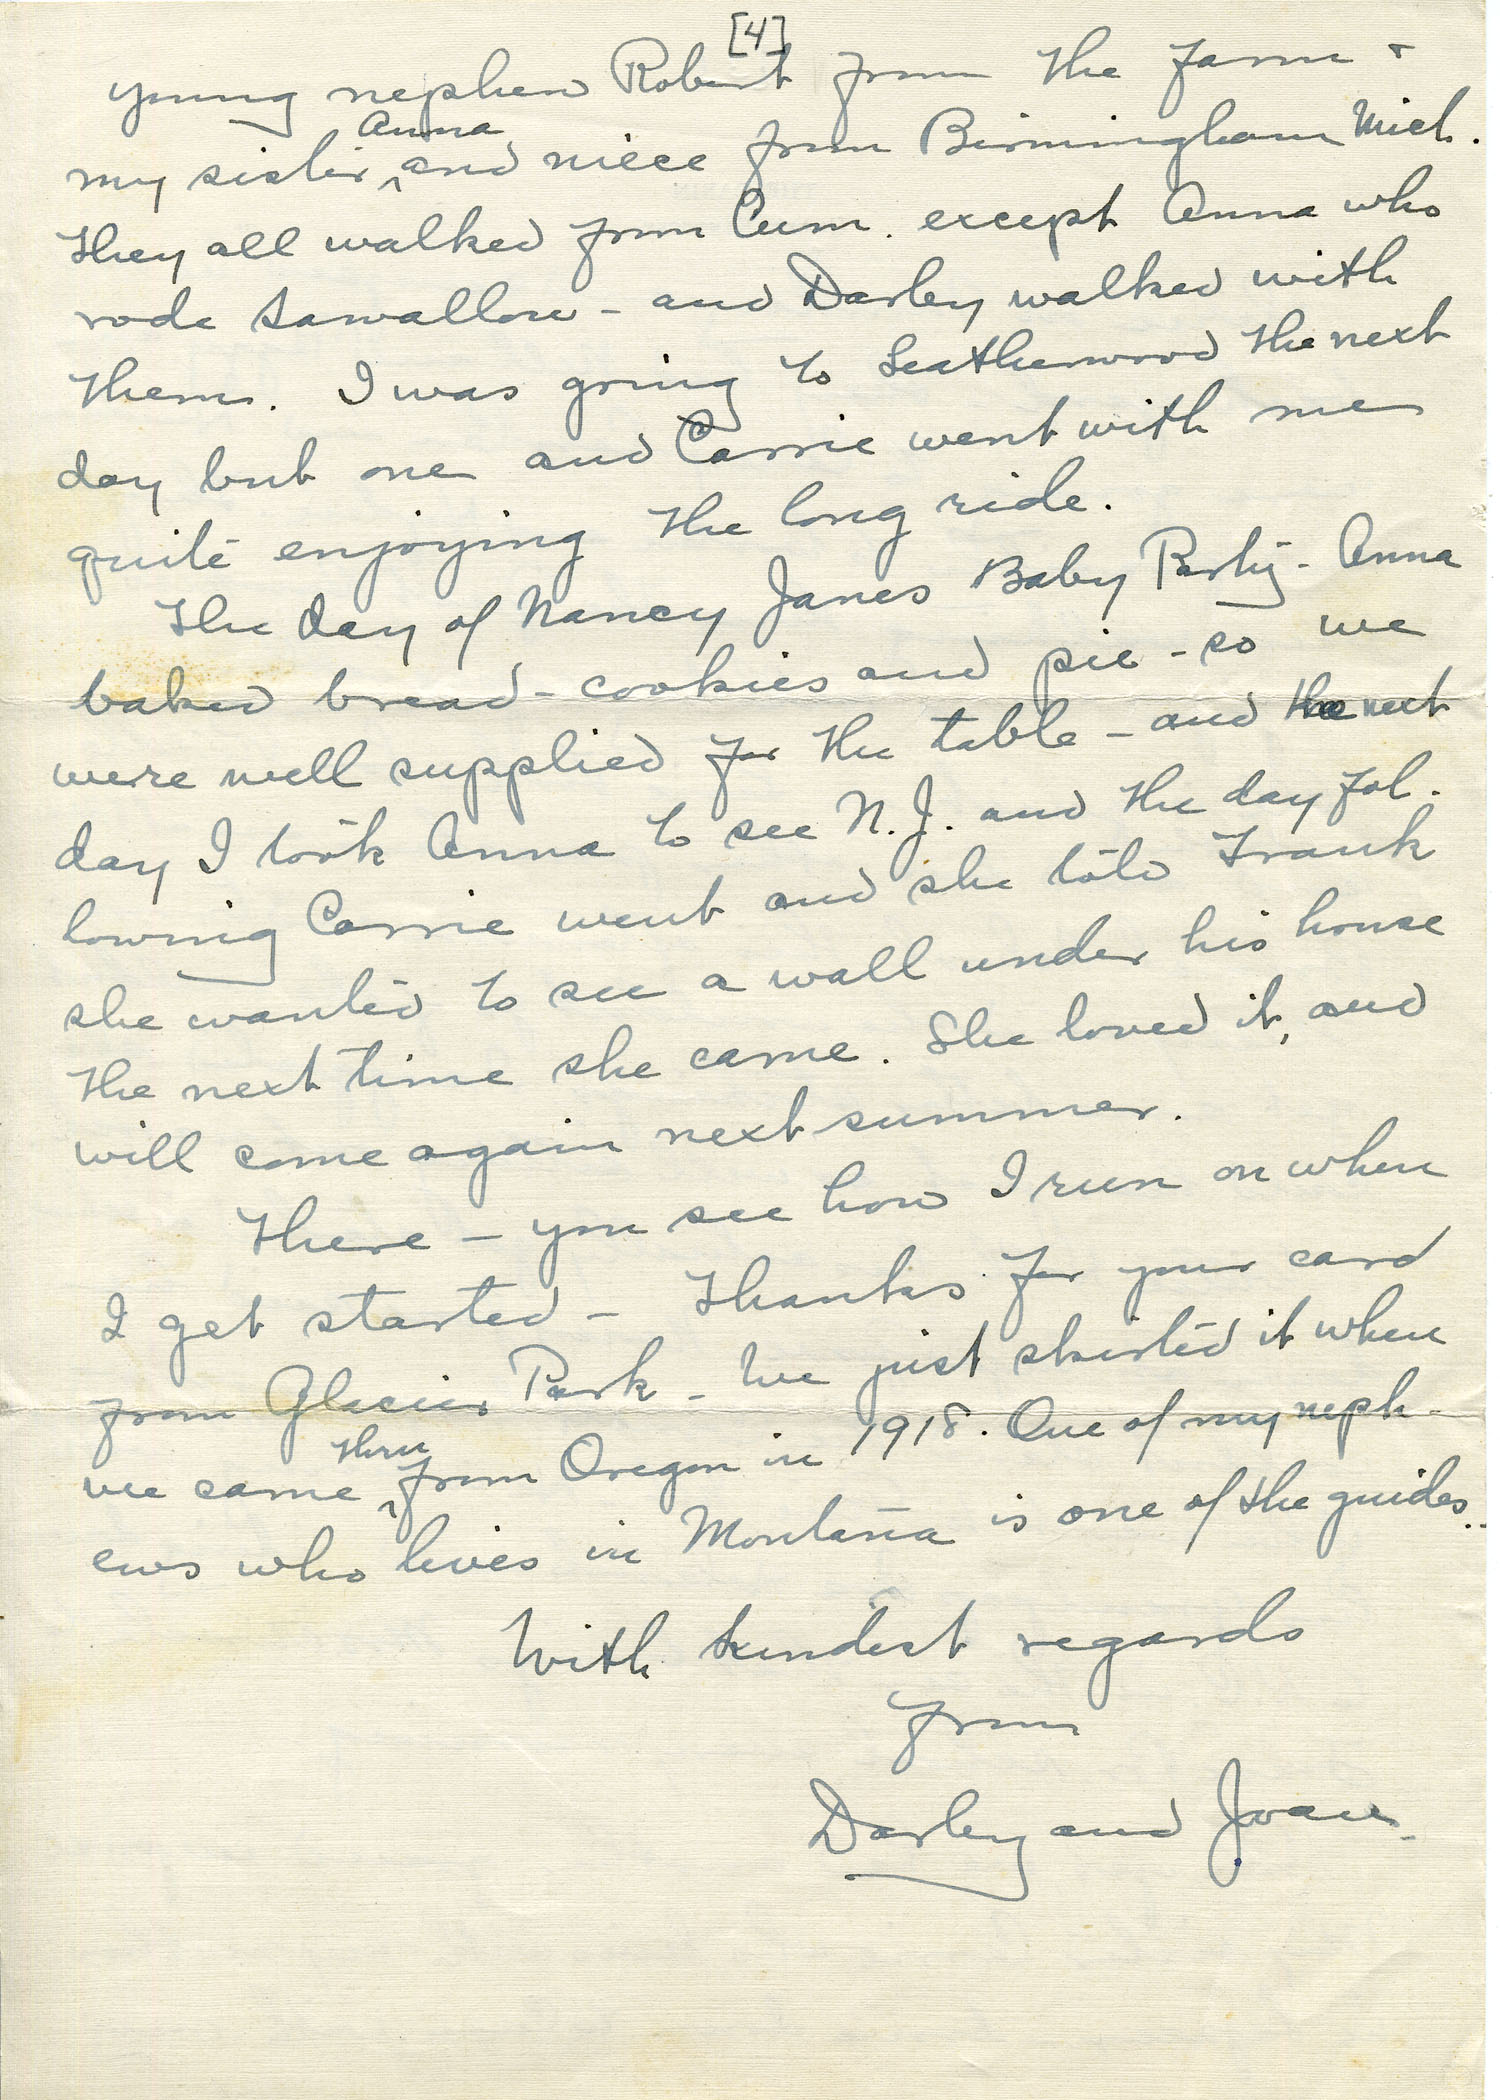 [4]
young nephew Robert from the farm +
my sister ^ and niece from Birmingham Mich.
Anna
they all walked from Cum. except Anna who
rode Sawallow - and Darley walked with
them. I was going to Leatherwood the next
day but one and Carrie went with me
quite enjoying the long ride.
The day of Nancy Janes Baby Party - Anna
baked bread - cookies and pie - so we
were well supplied for the table - and the next
day I took Anna to see N. J. and the day fol-
lowing Carrie went and she told Frank
she wanted to see a wall under his house
the next time she came. She loved it, and
will come again next summer.
There - you see how I run on when
I get started - Thanks for your card
from Glacier Park - We just skirted it when
we came ^ from Oregon in 1918. One of my neph-
thru
ews who lives in Montana is one of the guides.
With kindest regards
from
Darley and Joan.